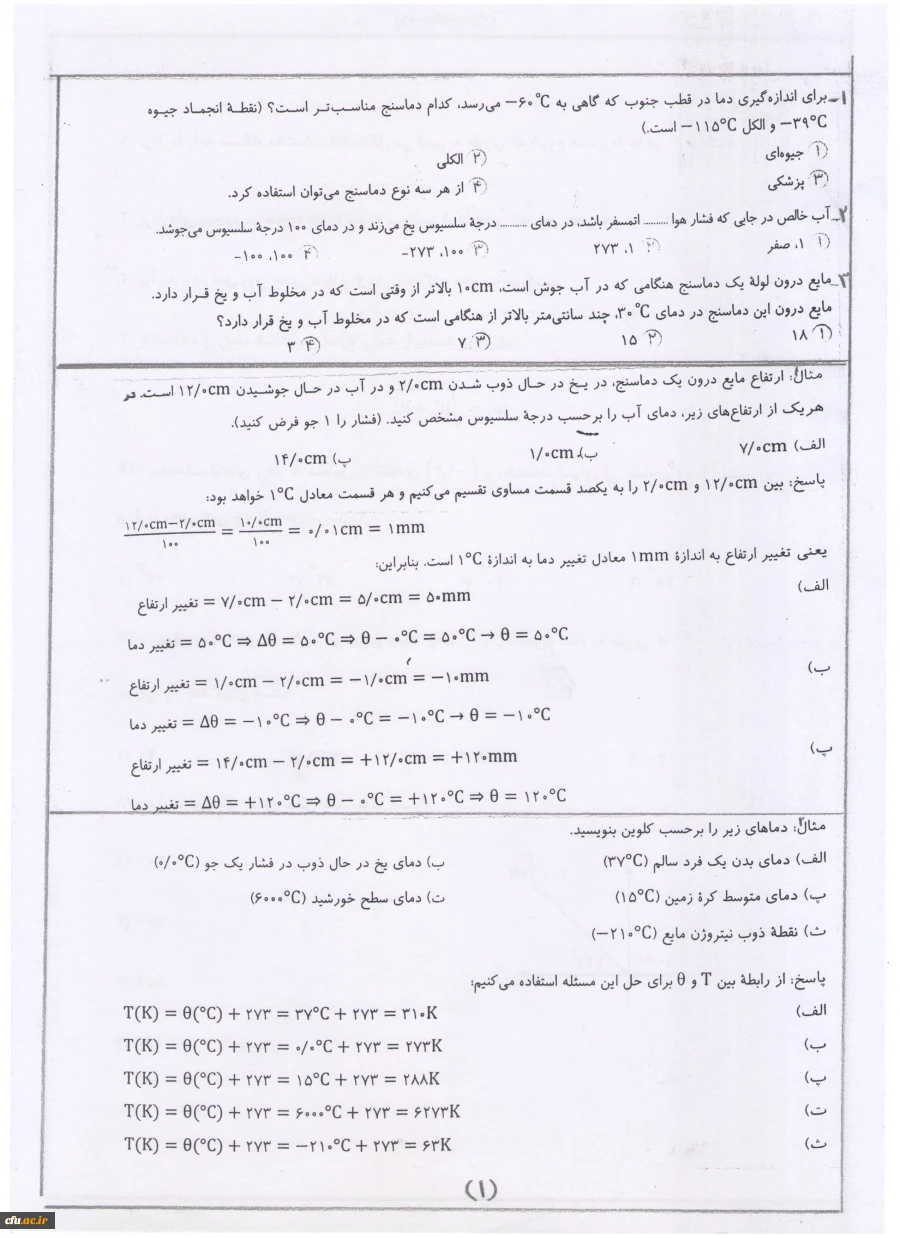 ۱- برای اندازه‌گیری دما در قطب جنوب که گاهی به ۶۰°C− می‌رسد، کدام دماسنج مناسب‌تر است؟ (نقطهٔ انجماد جیوه
۳۹°C− و الکل ۱۱۵°C− است.)
۱) جیوه‌ای ۲) الکلی
۳) پزشکی ۴) از هر سه نوع دماسنج می‌توان استفاده کرد.
۲- آب خالص در جایی که فشار هوا ......... اتمسفر باشد، در دمای .......... درجهٔ سلسیوس یخ می‌زند و در دمای ۱۰۰ درجهٔ سلسیوس می‌جوشد.
۱) ۱، صفر ۲) ۱، ۲۷۳ ۳) ۱۰۰، ۲۷۳− ۴) ۱۰۰، ۱۰۰−
۳- مایع درون لولهٔ یک دماسنج هنگامی که در آب جوش است، ۱۰cm بالاتر از وقتی است که در مخلوط آب و یخ قرار دارد.
مایع درون این دماسنج در دمای ۳۰°C، چند سانتی‌متر بالاتر از هنگامی است که در مخلوط آب و یخ قرار دارد؟
۱) ۱۸ ۲) ۱۵ ۳) ۷ ۴) ۳
مثال۱: ارتفاع مایع درون یک دماسنج، در یخ در حال ذوب شدن ۲/۰cm و در آب در حال جوشیدن ۱۲/۰cm است. در
هر یک از ارتفاع‌های زیر، دمای آب را برحسب درجهٔ سلسیوس مشخص کنید. (فشار را ۱ جو فرض کنید).
الف) ۷/۰cm ب) ۱/۰cm پ) ۱۴/۰cm
پاسخ: بین ۱۲/۰cm و ۲/۰cm را به یکصد قسمت مساوی تقسیم می‌کنیم و هر قسمت معادل ۱°C خواهد بود:
(۱۲/۰cm−۲/۰cm)/۱۰۰ = ۱۰/۰cm/۱۰۰ = ۰/۰۱cm = ۱mm
یعنی تغییر ارتفاع به اندازهٔ ۱mm معادل تغییر دما به اندازهٔ ۱°C است. بنابراین:
الف)
تغییر ارتفاع = ۷/۰cm − ۲/۰cm = ۵/۰cm = ۵۰mm
تغییر دما = ۵۰°C ⇒ Δθ = ۵۰°C ⇒ θ − ۰°C = ۵۰°C → θ = ۵۰°C
ب)
تغییر ارتفاع = ۱/۰cm − ۲/۰cm = −۱/۰cm = −۱۰mm
تغییر دما = Δθ = −۱۰°C ⇒ θ − ۰°C = −۱۰°C → θ = −۱۰°C
پ)
تغییر ارتفاع = ۱۴/۰cm − ۲/۰cm = +۱۲/۰cm = +۱۲۰mm
تغییر دما = Δθ = +۱۲۰°C ⇒ θ − ۰°C = +۱۲۰°C ⇒ θ = ۱۲۰°C
مثال۲: دماهای زیر را برحسب کلوین بنویسید.
الف) دمای بدن یک فرد سالم (۳۷°C) ب) دمای یخ در حال ذوب در فشار یک جو (۰/۰°C)
پ) دمای متوسط کرهٔ زمین (۱۵°C) ت) دمای سطح خورشید (۶۰۰۰°C)
ث) نقطهٔ ذوب نیتروژن مایع (۲۱۰°C−)
پاسخ: از رابطهٔ بین T و θ برای حل این مسئله استفاده می‌کنیم:
الف) T(K) = θ(°C) + ۲۷۳ = ۳۷°C + ۲۷۳ = ۳۱۰K
ب) T(K) = θ(°C) + ۲۷۳ = ۰/۰°C + ۲۷۳ = ۲۷۳K
پ) T(K) = θ(°C) + ۲۷۳ = ۱۵°C + ۲۷۳ = ۲۸۸K
ت) T(K) = θ(°C) + ۲۷۳ = ۶۰۰۰°C + ۲۷۳ = ۶۲۷۳K
ث) T(K) = θ(°C) + ۲۷۳ = −۲۱۰°C + ۲۷۳ = ۶۳K
(۱)
cfu.ac.ir